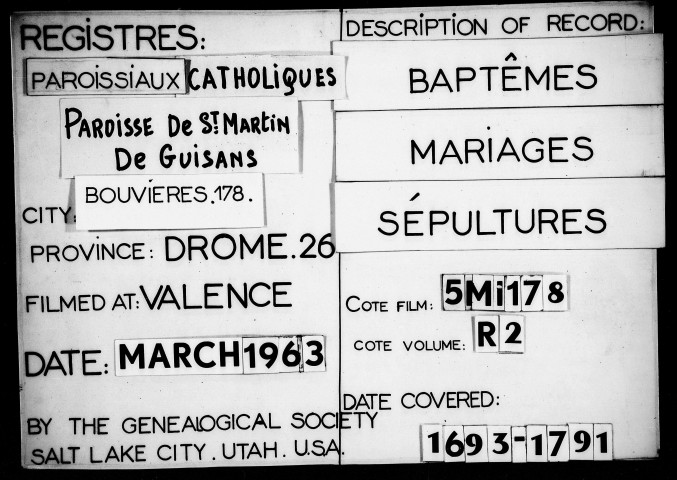 REGISTRES:
PAROISSIAUX CATHOLIQUES
PAROISSE DE ST MARTIN
DE GUISANS
CITY: BOUVIERES.178.
PROVINCE: DROME.26
FILMED AT: VALENCE
DATE: MARCH 1963
BY THE GENEALOGICAL SOCIETY
SALT LAKE CITY. UTAH. U.S.A.
DESCRIPTION OF RECORD:
BAPTÊMES
MARIAGES
SÉPULTURES
COTE FILM: 5Mi178
COTE VOLUME: R2
DATE COVERED:
1693-1791